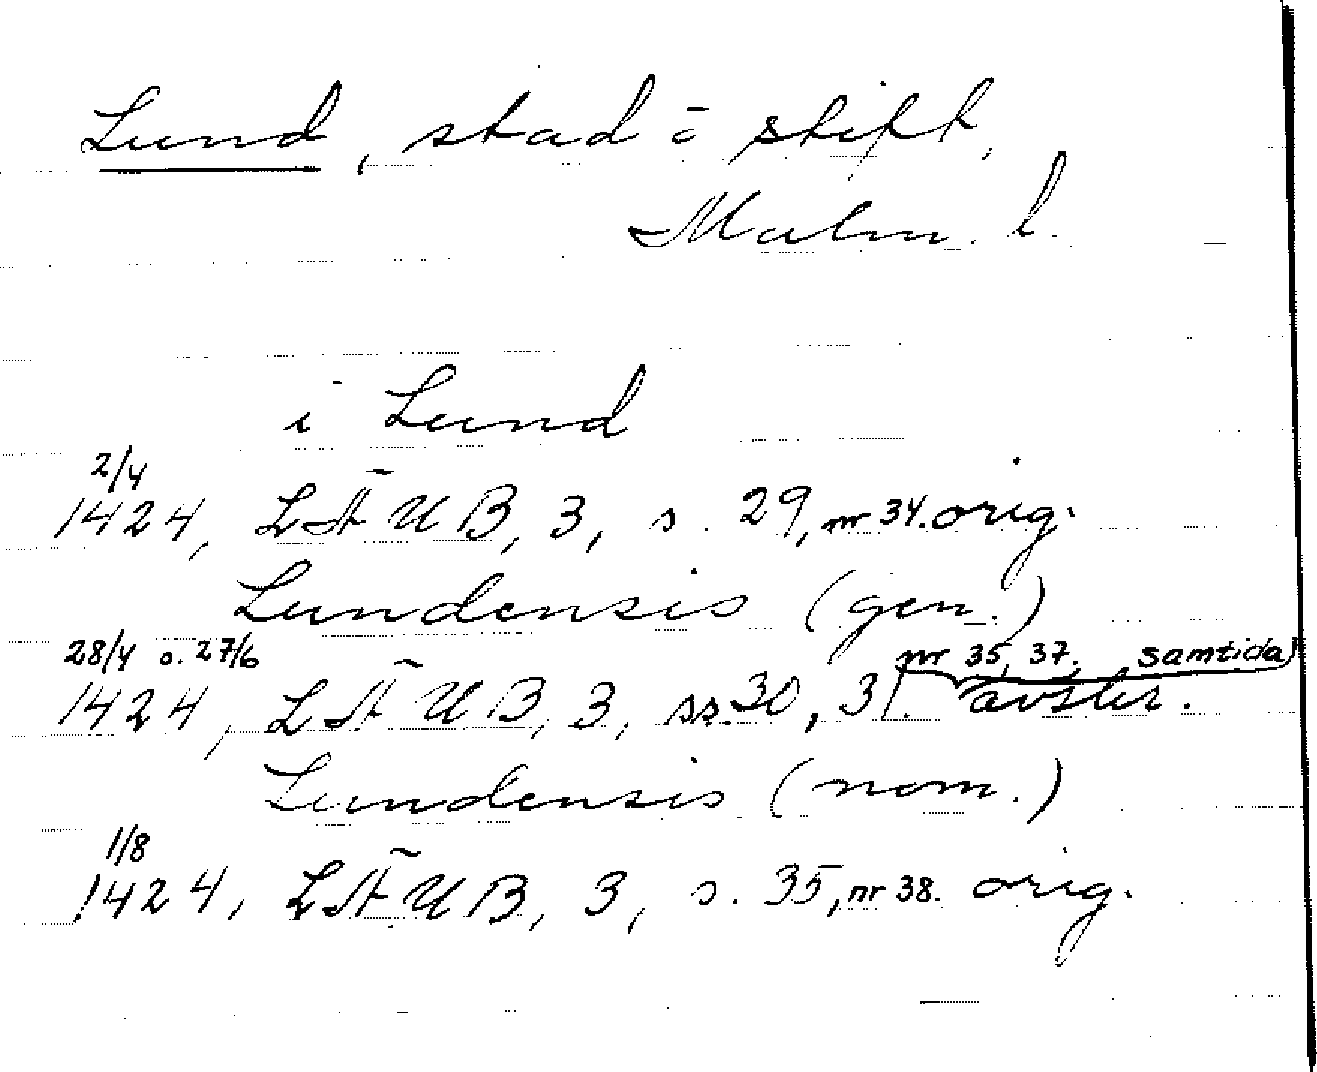 Lund, stad o stift,
Malm. l.
i Lund
2/4
1424, LÄUB, 3, s. 29, nr 34. orig.
Lundensis (gen.)
28/4 o. 27/6 nr 35, 37, samtida
1424, LÄUB, 3, ss. 30, 31. avskr.
Lundensis (nom.)
1/8
1424, LÄUB, 3, s. 35, nr 38. orig.